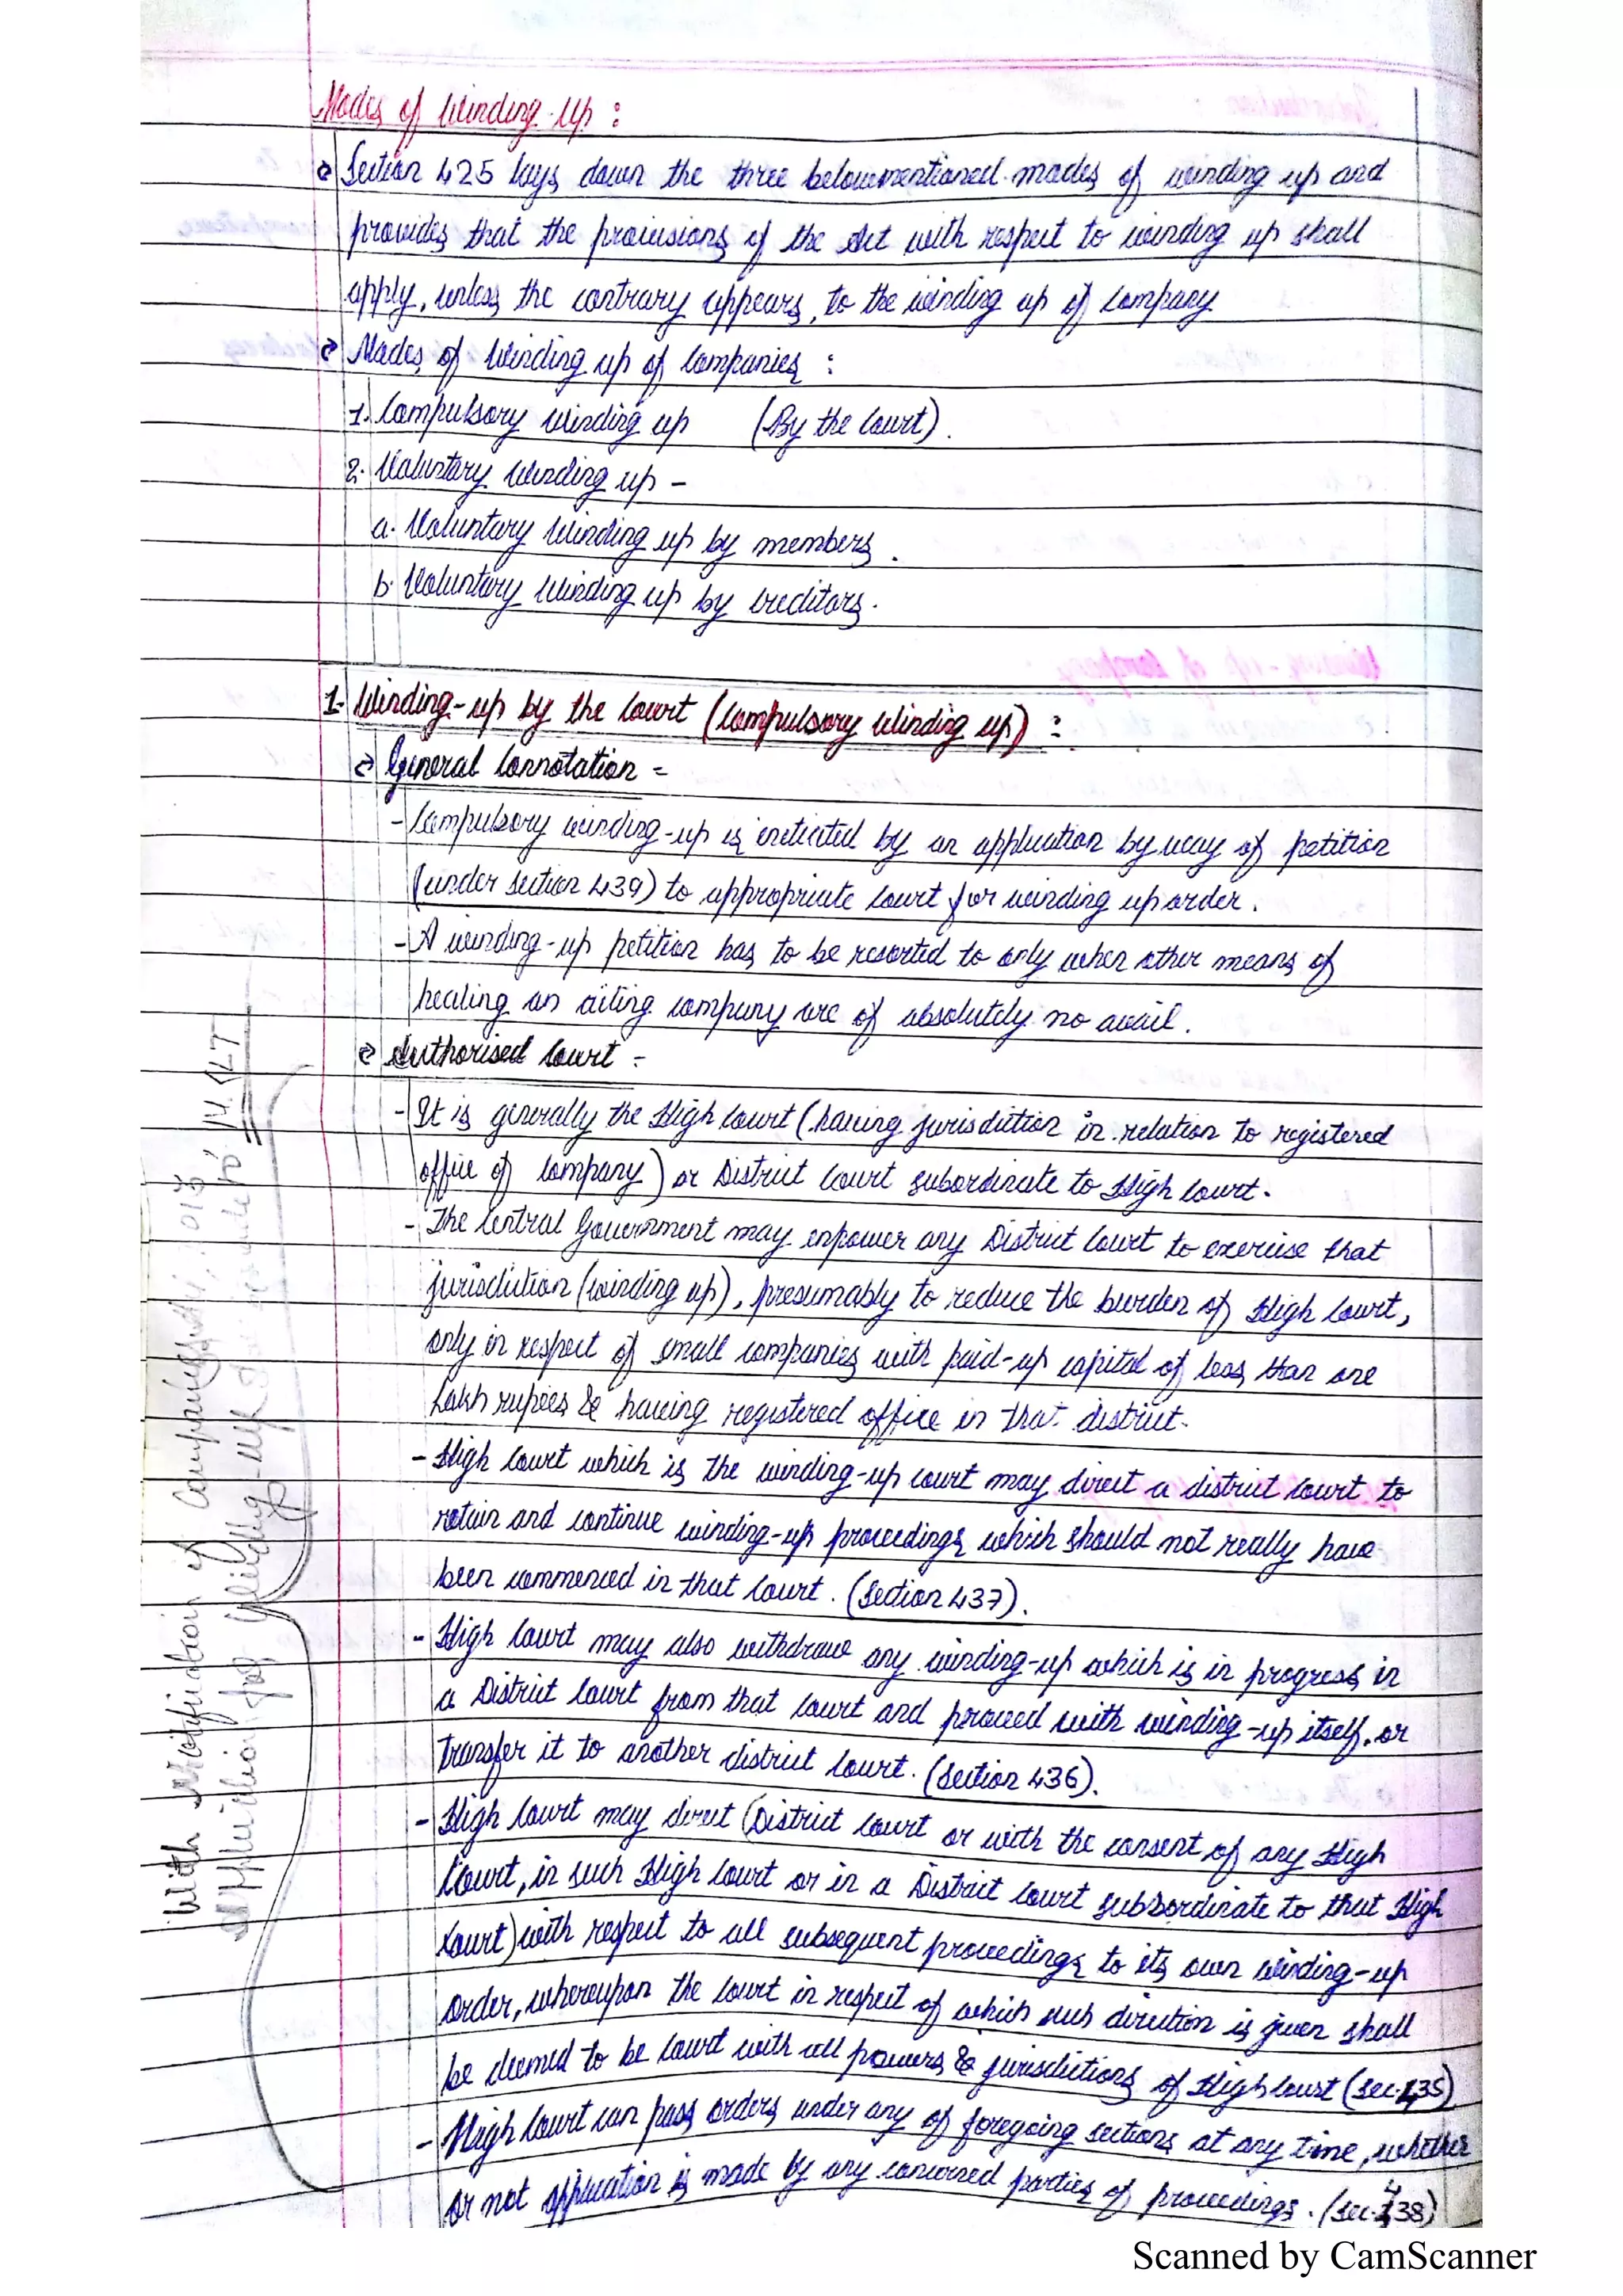 Modes of Winding-Up :
Section 425 lays down the three belowmentioned modes of winding up and
provides that the provisions of the Act with respect to winding up shall
apply, unless the contrary appears, to the winding up of Company
Modes of Winding up of Companies :
1. Compulsory winding up (By the Court).
2. Voluntary Winding up -
a. Voluntary Winding up by members.
b. Voluntary Winding up by creditors.
1. Winding-up by the Court (Compulsory Winding up) :
General Connotation =
- Compulsory winding-up is initiated by an application by way of petition
(under section 439) to appropriate Court for winding up order.
- A winding-up petition has to be resorted to only when other means of
healing an ailing company are of absolutely no avail.
Authorised Court -
- It is generally the High Court (having jurisdiction in relation to registered
office of company) or District Court subordinate to High Court.
- The Central Government may enpower any District Court to exercise that
jurisdiction (winding up), presumably to reduce the burden of High Court,
only in respect of small companies with paid-up capital of less than one
Lakh rupees & having registered office in that district.
- High Court which is the winding-up court may direct a district court to
retain and continue winding-up proceedings which should not really have
been commenced in that Court. (Section 437).
- High Court may also withdraw any winding-up which is in progress in
a District Court from that court and proceed with winding-up itself, or
transfer it to another district Court. (Section 436).
- High Court may direct (District Court or with the consent of any High
Court, in such High Court or in a District Court subsordinate to that High
Court) with respect to all subsequent proceedings to its own winding-up
order, whereupon the Court in respect of which such direction is given shall
be deemed to be Court with all powers & jurisdictions of High Court (Sec.435)
- High Court can pass orders under any of foregoing sections at any time, whether
or not application is made by any concerned parties of proceedings. (Sec.438)
With Notification of Companies Act, 2013
Application for Winding-up made to NCLT
Scanned by CamScanner